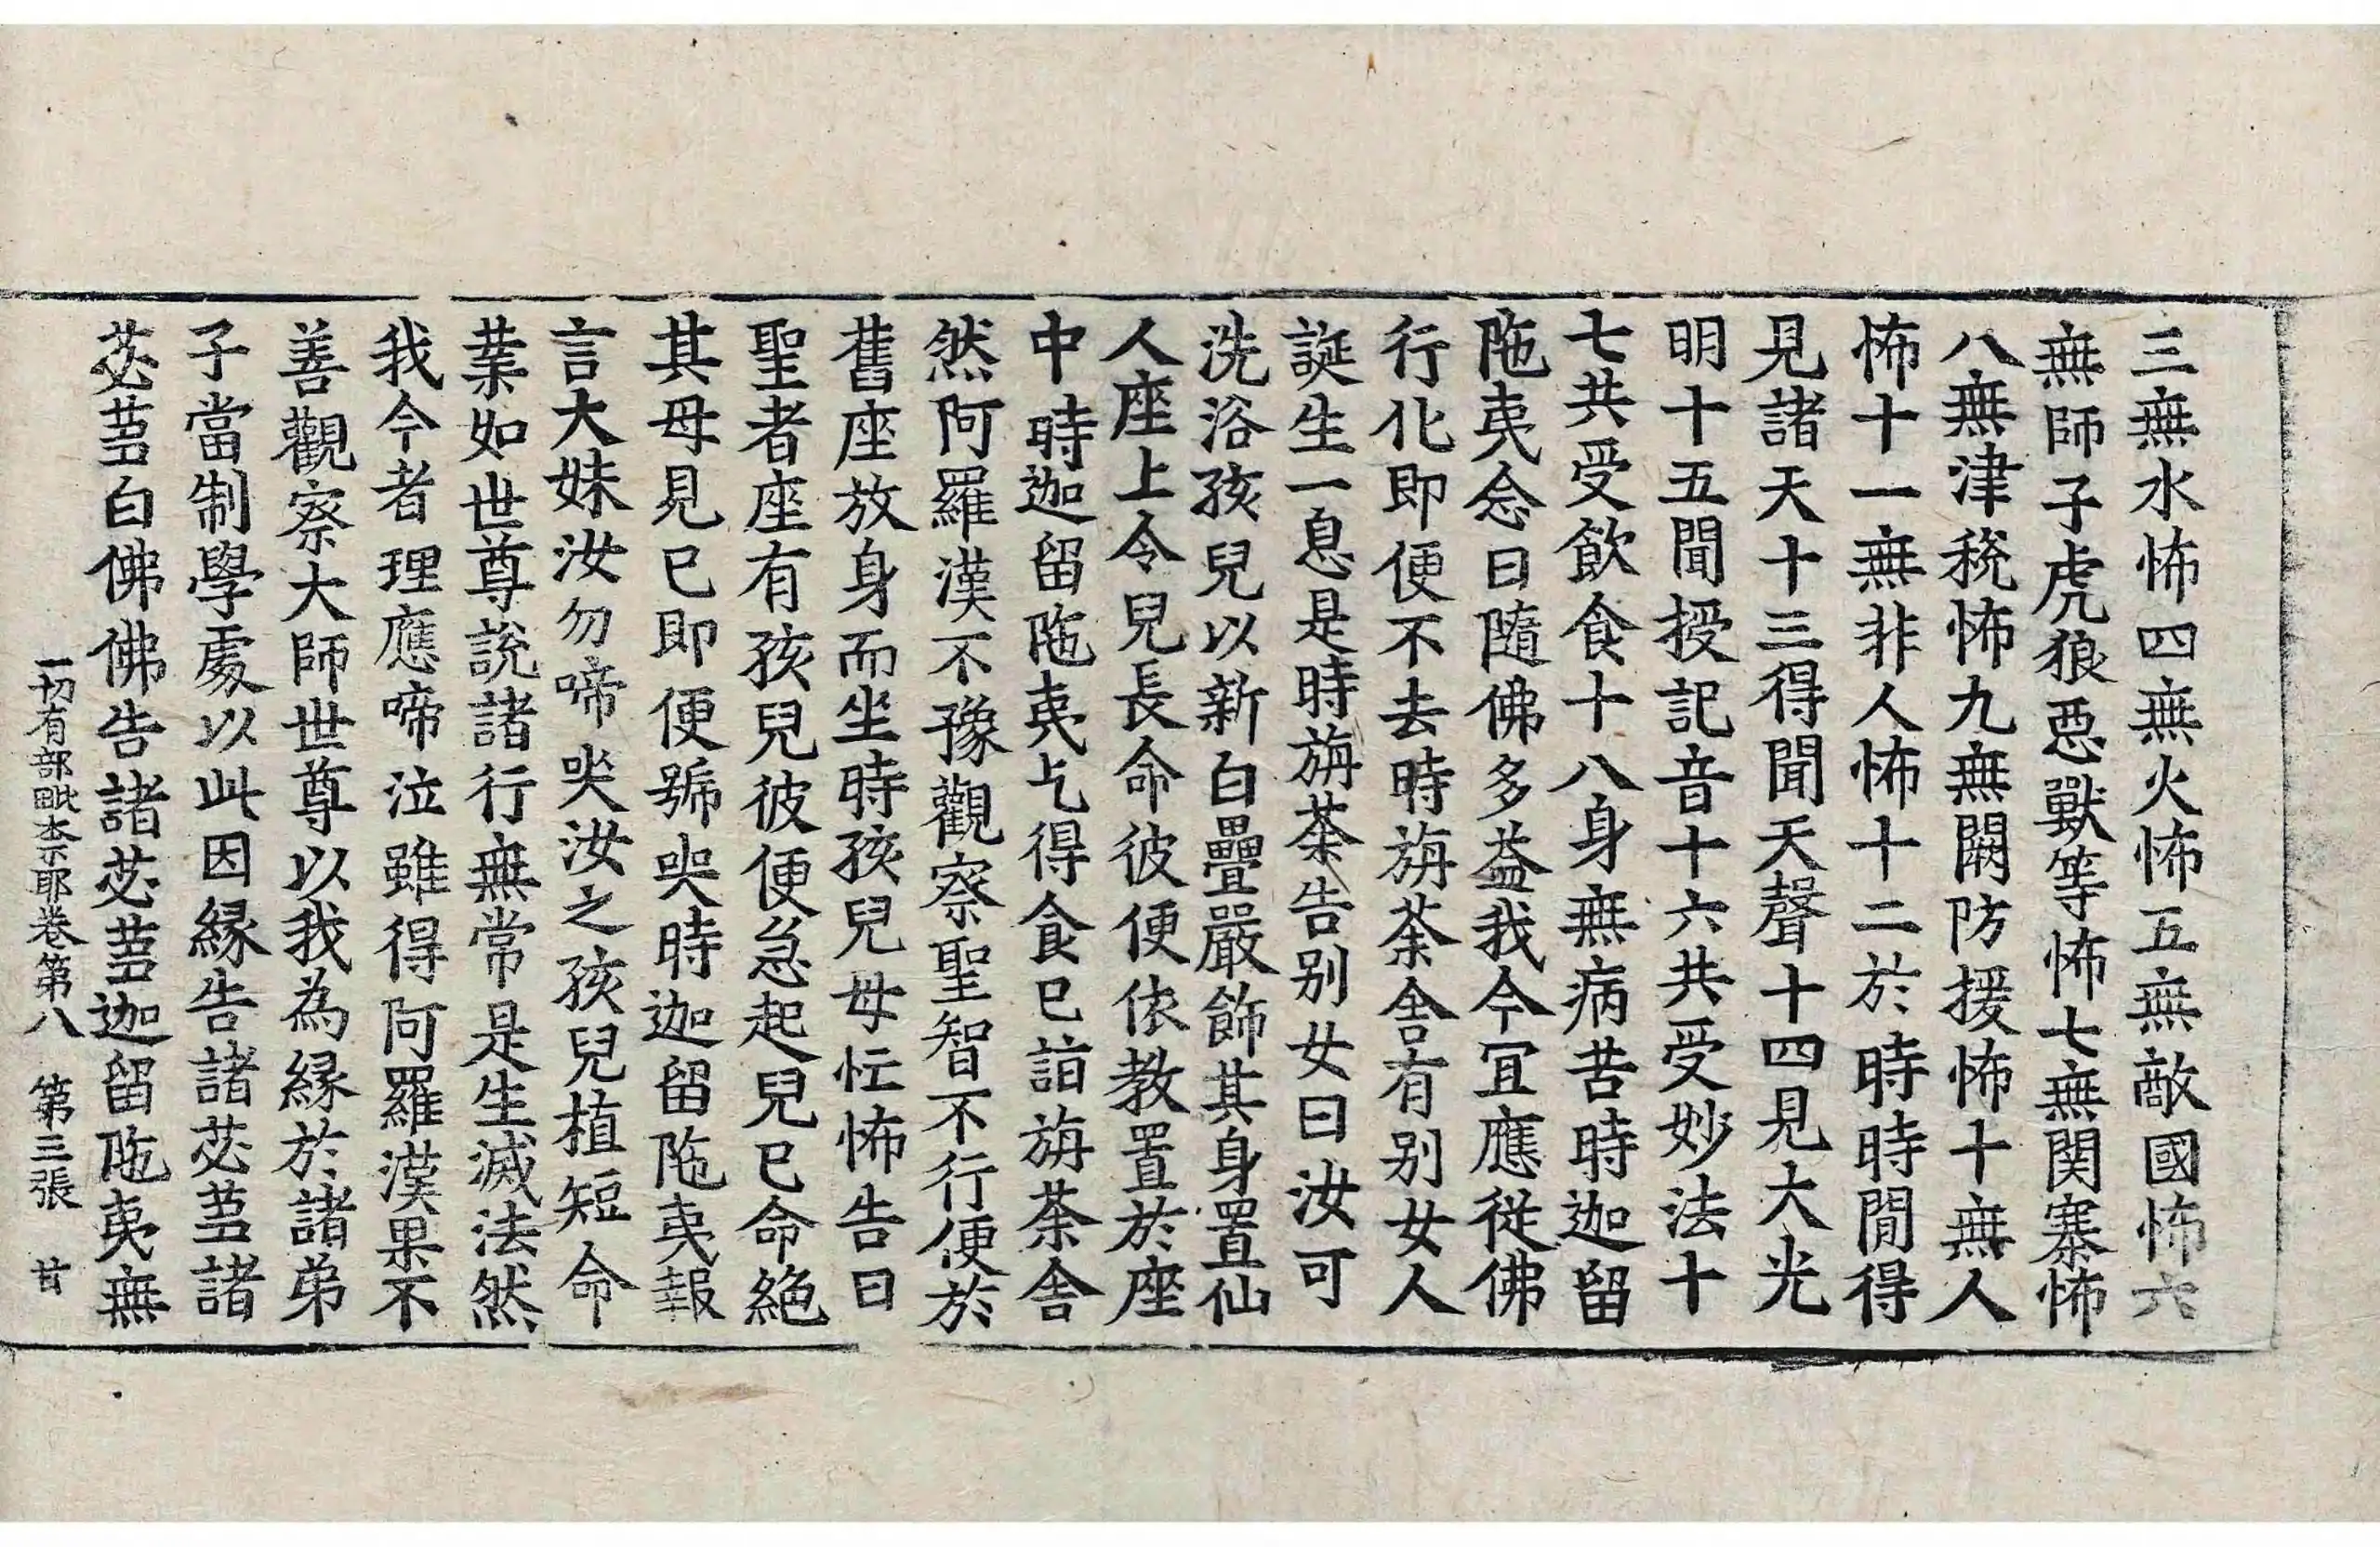 三無水怖四無火怖五無敵國怖六
無師子虎狼惡獸等怖七無関寨怖
八無津稅怖九無闕防援怖十無人
怖十一無非人怖十二於時時間得
見諸天十三得聞天聲十四見大光
明十五聞授記音十六共受妙法十
七共受飲食十八身無病苦時迦留
陁夷念曰隨佛多益我今宜應從佛
行化即便不去時旃荼舍有别女人
誕生一息是時旃荼告别女曰汝可
洗浴孩兒以新白疊嚴飾其身置仙
人座上令兒長命彼便依教置於座
中時迦留陁夷乞得食已詣旃荼舍
然阿羅漢不豫觀察聖智不行便於
舊座放身而坐時孩兒母忙怖告曰
聖者座有孩兒彼便急起兒已命絶
其母見已即便號哭時迦留陁夷報
言大妹汝勿啼哭汝之孩兒植短命
業如世尊說諸行無常是生滅法然
我今者理應啼泣雖得阿羅漢果不
善觀察大師世尊以我為緣於諸弟
子當制學處以此因緣告諸苾蒭諸
苾蒭白佛佛告諸苾蒭迦留陁夷無
一切有部毗柰耶卷第八 第三張 甘